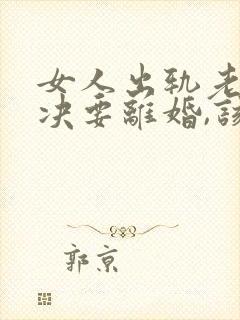 女人出轨老
决要離婚,該
郭京